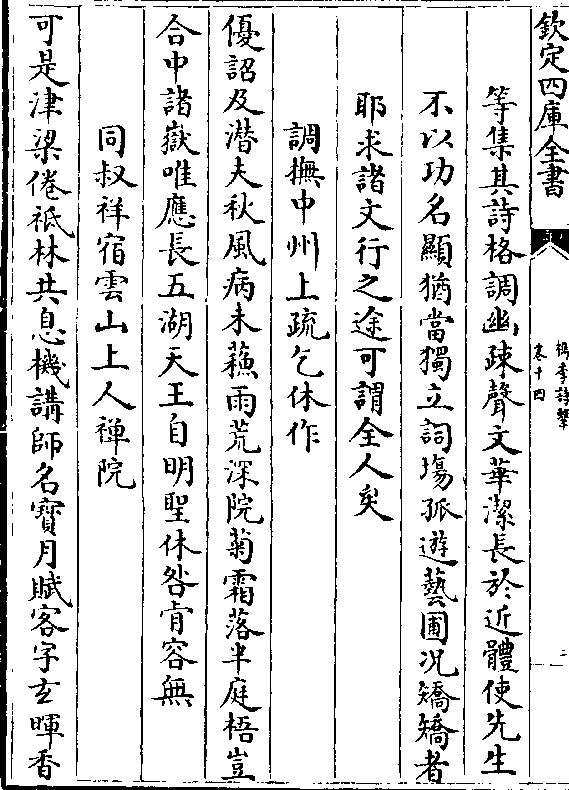 欽定四庫全書
檇李詩繫
卷十四
二
等集其詩格調幽疎聲文華潔長於近體使先生
不以功名顯猶當獨立詞塲孤遊藝圃況矯矯者
耶求諸文行之途可謂全人矣
調撫中州上疏乞休作
優詔及潜夫秋風病未蘓雨荒深院菊霜落半庭梧豈
合中諸嶽唯應長五湖天王自明聖休咎肯容無
同叔祥宿雲山上人禪院
可是津梁倦祇林共息機講師名寶月賦客字玄暉香